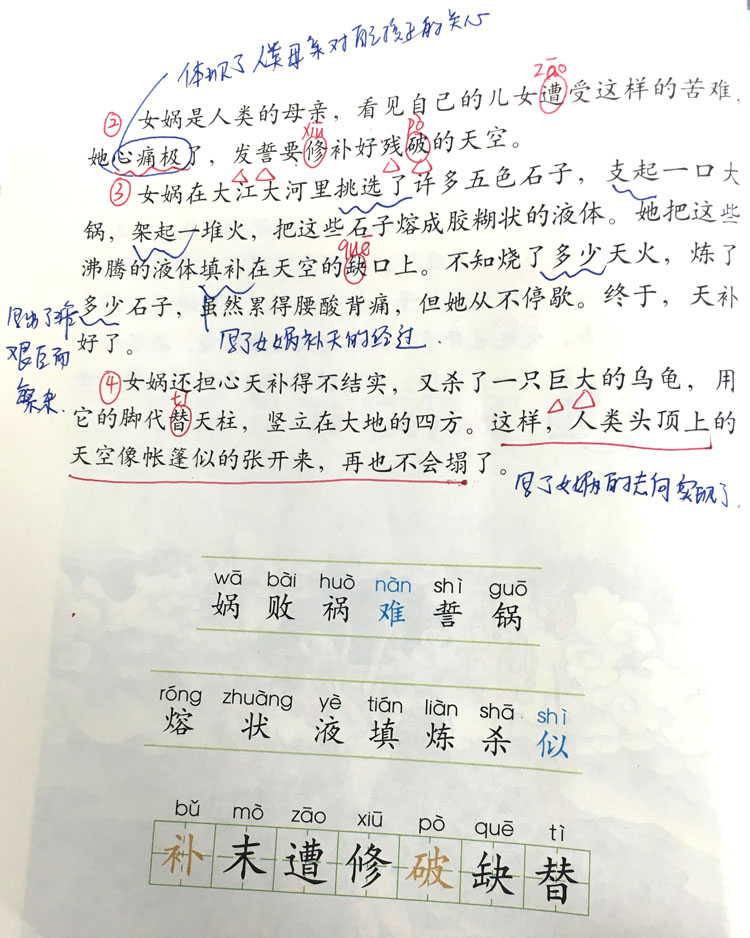 体现了人类母亲对自己孩子的关心
zāo
② 女娲是人类的母亲，看见自己的儿女遭受这样的苦难，
xiū pò
她心痛极了，发誓要修补好残破的天空。
③ 女娲在大江大河里挑选了许多五色石子，支起一口大
锅，架起一堆火，把这些石子熔成胶糊状的液体。她把这些
quē
沸腾的液体填补在天空的缺口上。不知烧了多少天火，炼了
多少石子，虽然累得腰酸背痛，但她从不停歇。终于，天补
好了。
写了女娲补天的经过.
艰巨而
④ 女娲还担心天补得不结实，又杀了一只巨大的乌龟，用
tì
它的脚代替天柱，竖立在大地的四方。这样，人类头顶上的
天空像帐篷似的张开来，再也不会塌了。
写了女娲的志向实现了
wā bài huò nàn shì guō
娲 败 祸 难 誓 锅
róng zhuàng yè tián liàn shā shì
熔 状 液 填 炼 杀 似
bǔ mò zāo xiū pò quē tì
补 末 遭 修 破 缺 替